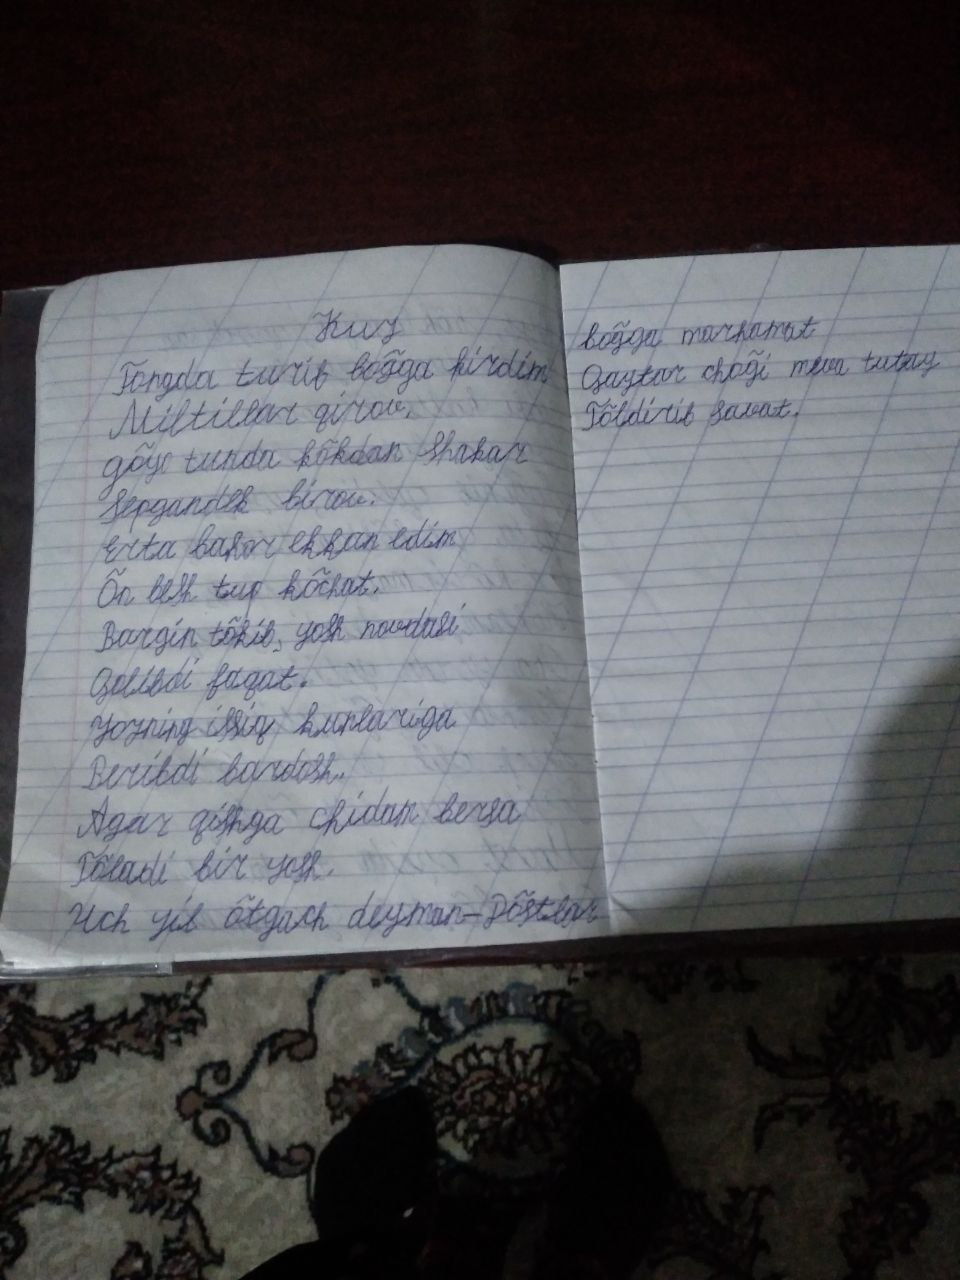 Kuz
Tongda turib bõg̃ga kirdim
Miltillar qirov,
gõyo tunda kõkdan shakar
Sepgandek birov.
Erta bahor ekkan edim
Õn besh tup kõchat.
Bargin tõkib, yosh novdasi
Qolibdi faqat.
Yozning issiq kunlariga
Beribdi bardosh.
Agar qishga chidan bersa
Tõladi bir yosh.
Uch yil õtgach deyman-Dõstlar
bog̃ga marhamat
Qaytar chog̃i meva tutay
Tõldirib savat.